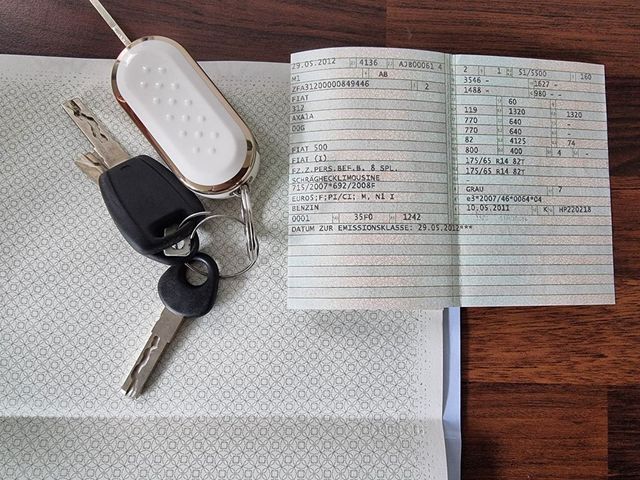 29.05.2012 4136 AJ800061 4
M1 AB
ZFA31200000849446 2
FIAT
312
AXA1A
00G
FIAT 500
FIAT (I)
FZ.Z.PERS.BEF.B. 8 SPL.
SCHRÄGHECKLIMOUSINE
715/2007*692/2008F
EURO5;F;PI/CI; M, N1 I
BENZIN
0001 35F0 1242
DATUM ZUR EMISSIONSKLASSE: 29.05.2012***
2 1 51/5500 160
3546 - 1627 -
1488 - <980 - -
60
119 1320 1320
770 640 -
770 640 -
82 4125 74
800 400 4 -
175/65 R14 82T
175/65 R14 82T
GRAU 7
e3*2007/46*0064*04
10.05.2011 K HP220218